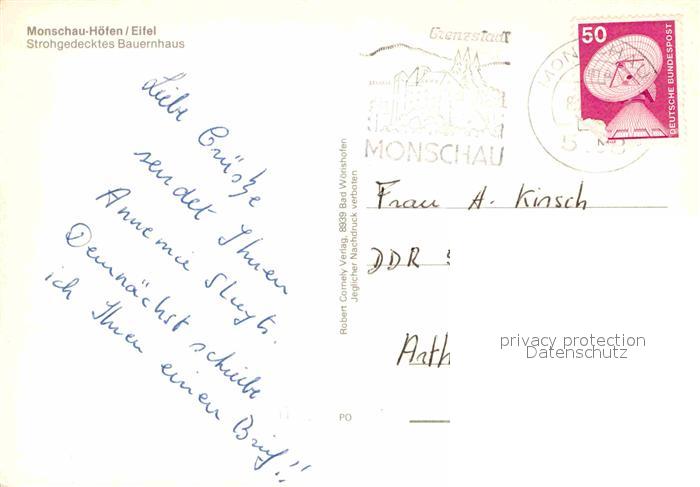 Monschau-Höfen / Eifel
Strohgedecktes Bauernhaus
Liebe Grüsze
sendet Ihnen
Annemie
Demnächst schreibe
ich Ihnen einen Brief!!
Robert Cornely Verlag, 8939 Bad Wörishofen
Jeglicher Nachdruck verboten
PO
Grenzstadt
MONSCHAU
50
DEUTSCHE BUNDESPOST
Frau A. Kirsch
DDR
Arth
privacy protection
Datenschutz